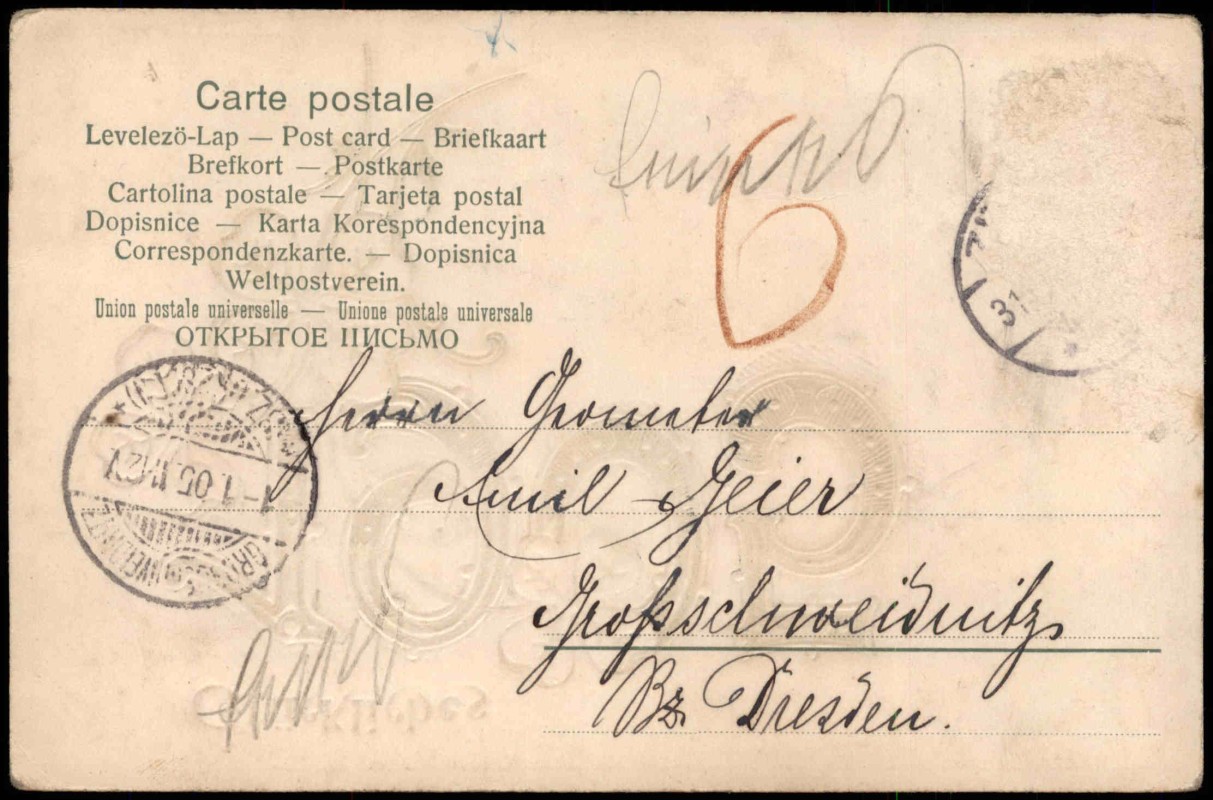 Carte postale
Levelezö-Lap — Post card — Briefkaart
Brefkort — Postkarte
Cartolina postale — Tarjeta postal
Dopisnice — Karta Korespondencyjna
Correspondenzkarte. — Dopisnica
Weltpostverein.
Union postale universelle — Unione postale universale
ОТКРЫТОЕ ПИСЬМО
6
31
1.1.05.11-12V
Herrn Geometer
Emil Geier
Großschweidnitz
Bz. Dresden.